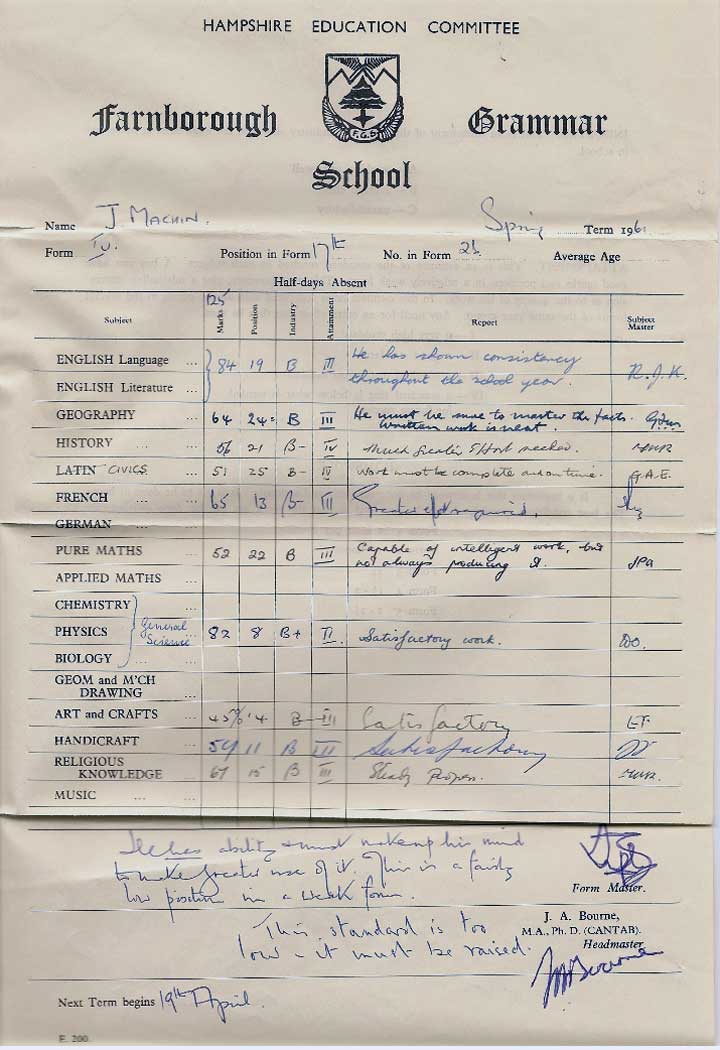 HAMPSHIRE EDUCATION COMMITTEE
F.G.S
Farnborough Grammar
School
Name J. Machin. Spring Term 1961
Form IV. Position in Form 17th No. in Form 25 Average Age
Half-days Absent
Subject 125 Marks Position Industry Attainment Report Subject Master
ENGLISH Language ... 84 19 B III He has shown consistency R.J.K.
ENGLISH Literature ... throughout the school year.
GEOGRAPHY ... 64 24= B III He must be sure to master the facts.
Written work is neat.
HISTORY ... ... 56 21 B- IV Much greater effort needed.
LATIN CIVICS ... 51 25 B- IV Work must be complete and on time. G.A.E.
FRENCH ... ... 65 13 B- III Greater effort required.
GERMAN ... ...
PURE MATHS ... 52 22 B III Capable of intelligent work, but
not always producing it.
APPLIED MATHS ...
CHEMISTRY ...
PHYSICS General Science ... 82 8 B+ II. Satisfactory work.
BIOLOGY ... ...
GEOM and M'CH
DRAWING ...
ART and CRAFTS ... 45% 14 B- III Satisfactory
HANDICRAFT ... 54 11 B III Satisfactory
RELIGIOUS
KNOWLEDGE ... 67 15 B III Steady
MUSIC ... ...
He has ability & must make up his mind
to make greater use of it. This is a fairly
low position in a weak form.
Form Master.
This standard is too
low - it must be raised.
J. A. Bourne,
M.A., Ph. D. (CANTAB).
Headmaster
Next Term begins 19th April.
E. 200.